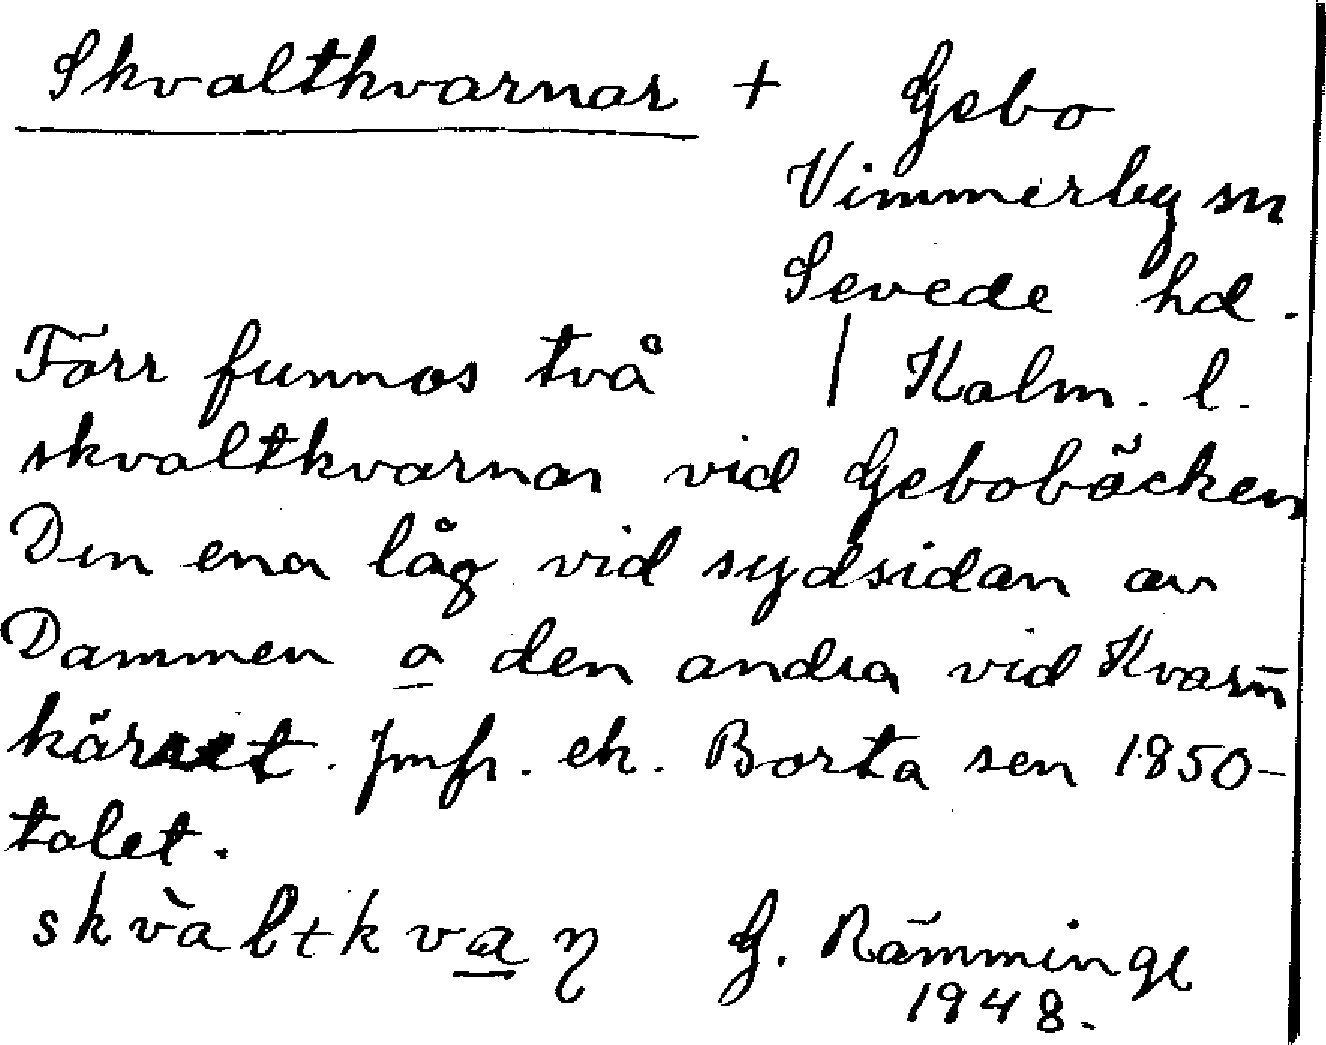 Skvaltkvarnar + Gebo
Vimmerby sn
Sevede hd.
Förr funnos två | Kalm. l.
skvaltkvarnar vid Gebobäcken
Den ena låg vid sydsidan av
Dammen a den andra vid Kvarn
kärret. Jmfr. ek. Borta sen 1850-
talet.
skvàltkvaɳ G. Rämminge
1948.